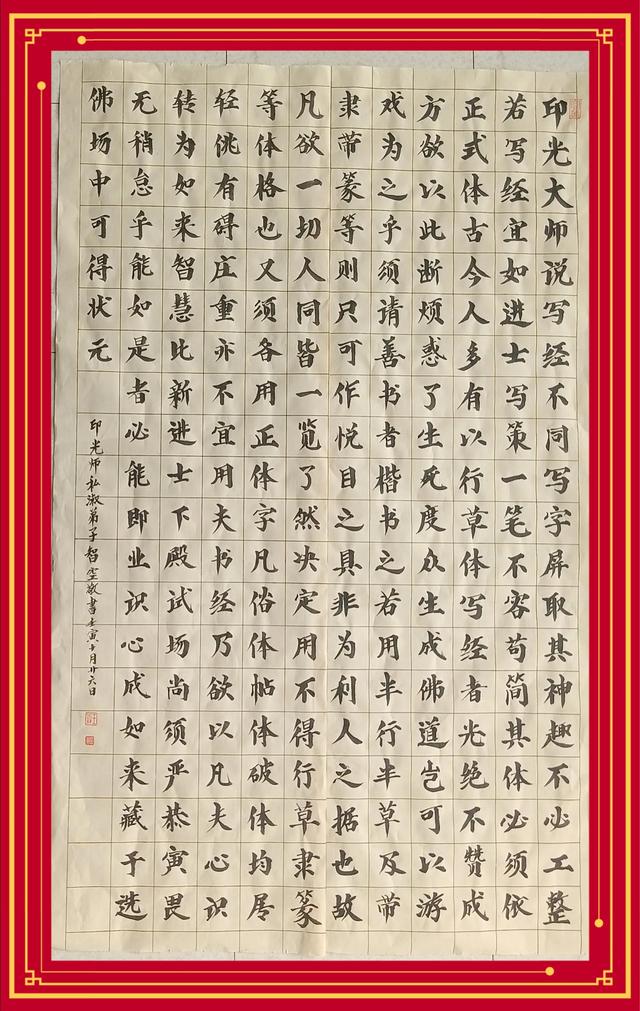 印光大师说写经不同写字屏取其神趣不必工整
若写经宜如进士写策一笔不容苟简其体必须依
正式体古今人多有以行草体写经者光绝不赞成
方欲以此断烦惑了生死度众生成佛道岂可以游
戏为之乎须请善书者楷书之若用半行半草及带
隶带篆等则只可作悦目之具非为利人之据也故
凡欲一切人同皆一览了然决定用不得行草隶篆
等体格也又须各用正体字凡俗体帖体破体均居
轻佻有碍庄重亦不宜用夫书经乃欲以凡夫心识
转为如来智慧比新进士下殿试场尚须严恭寅畏
无稍怠乎能如是者必能即业识心成如来藏于选
佛场中可得状元
印光师私淑弟子智空敬書壬寅十月廿六日